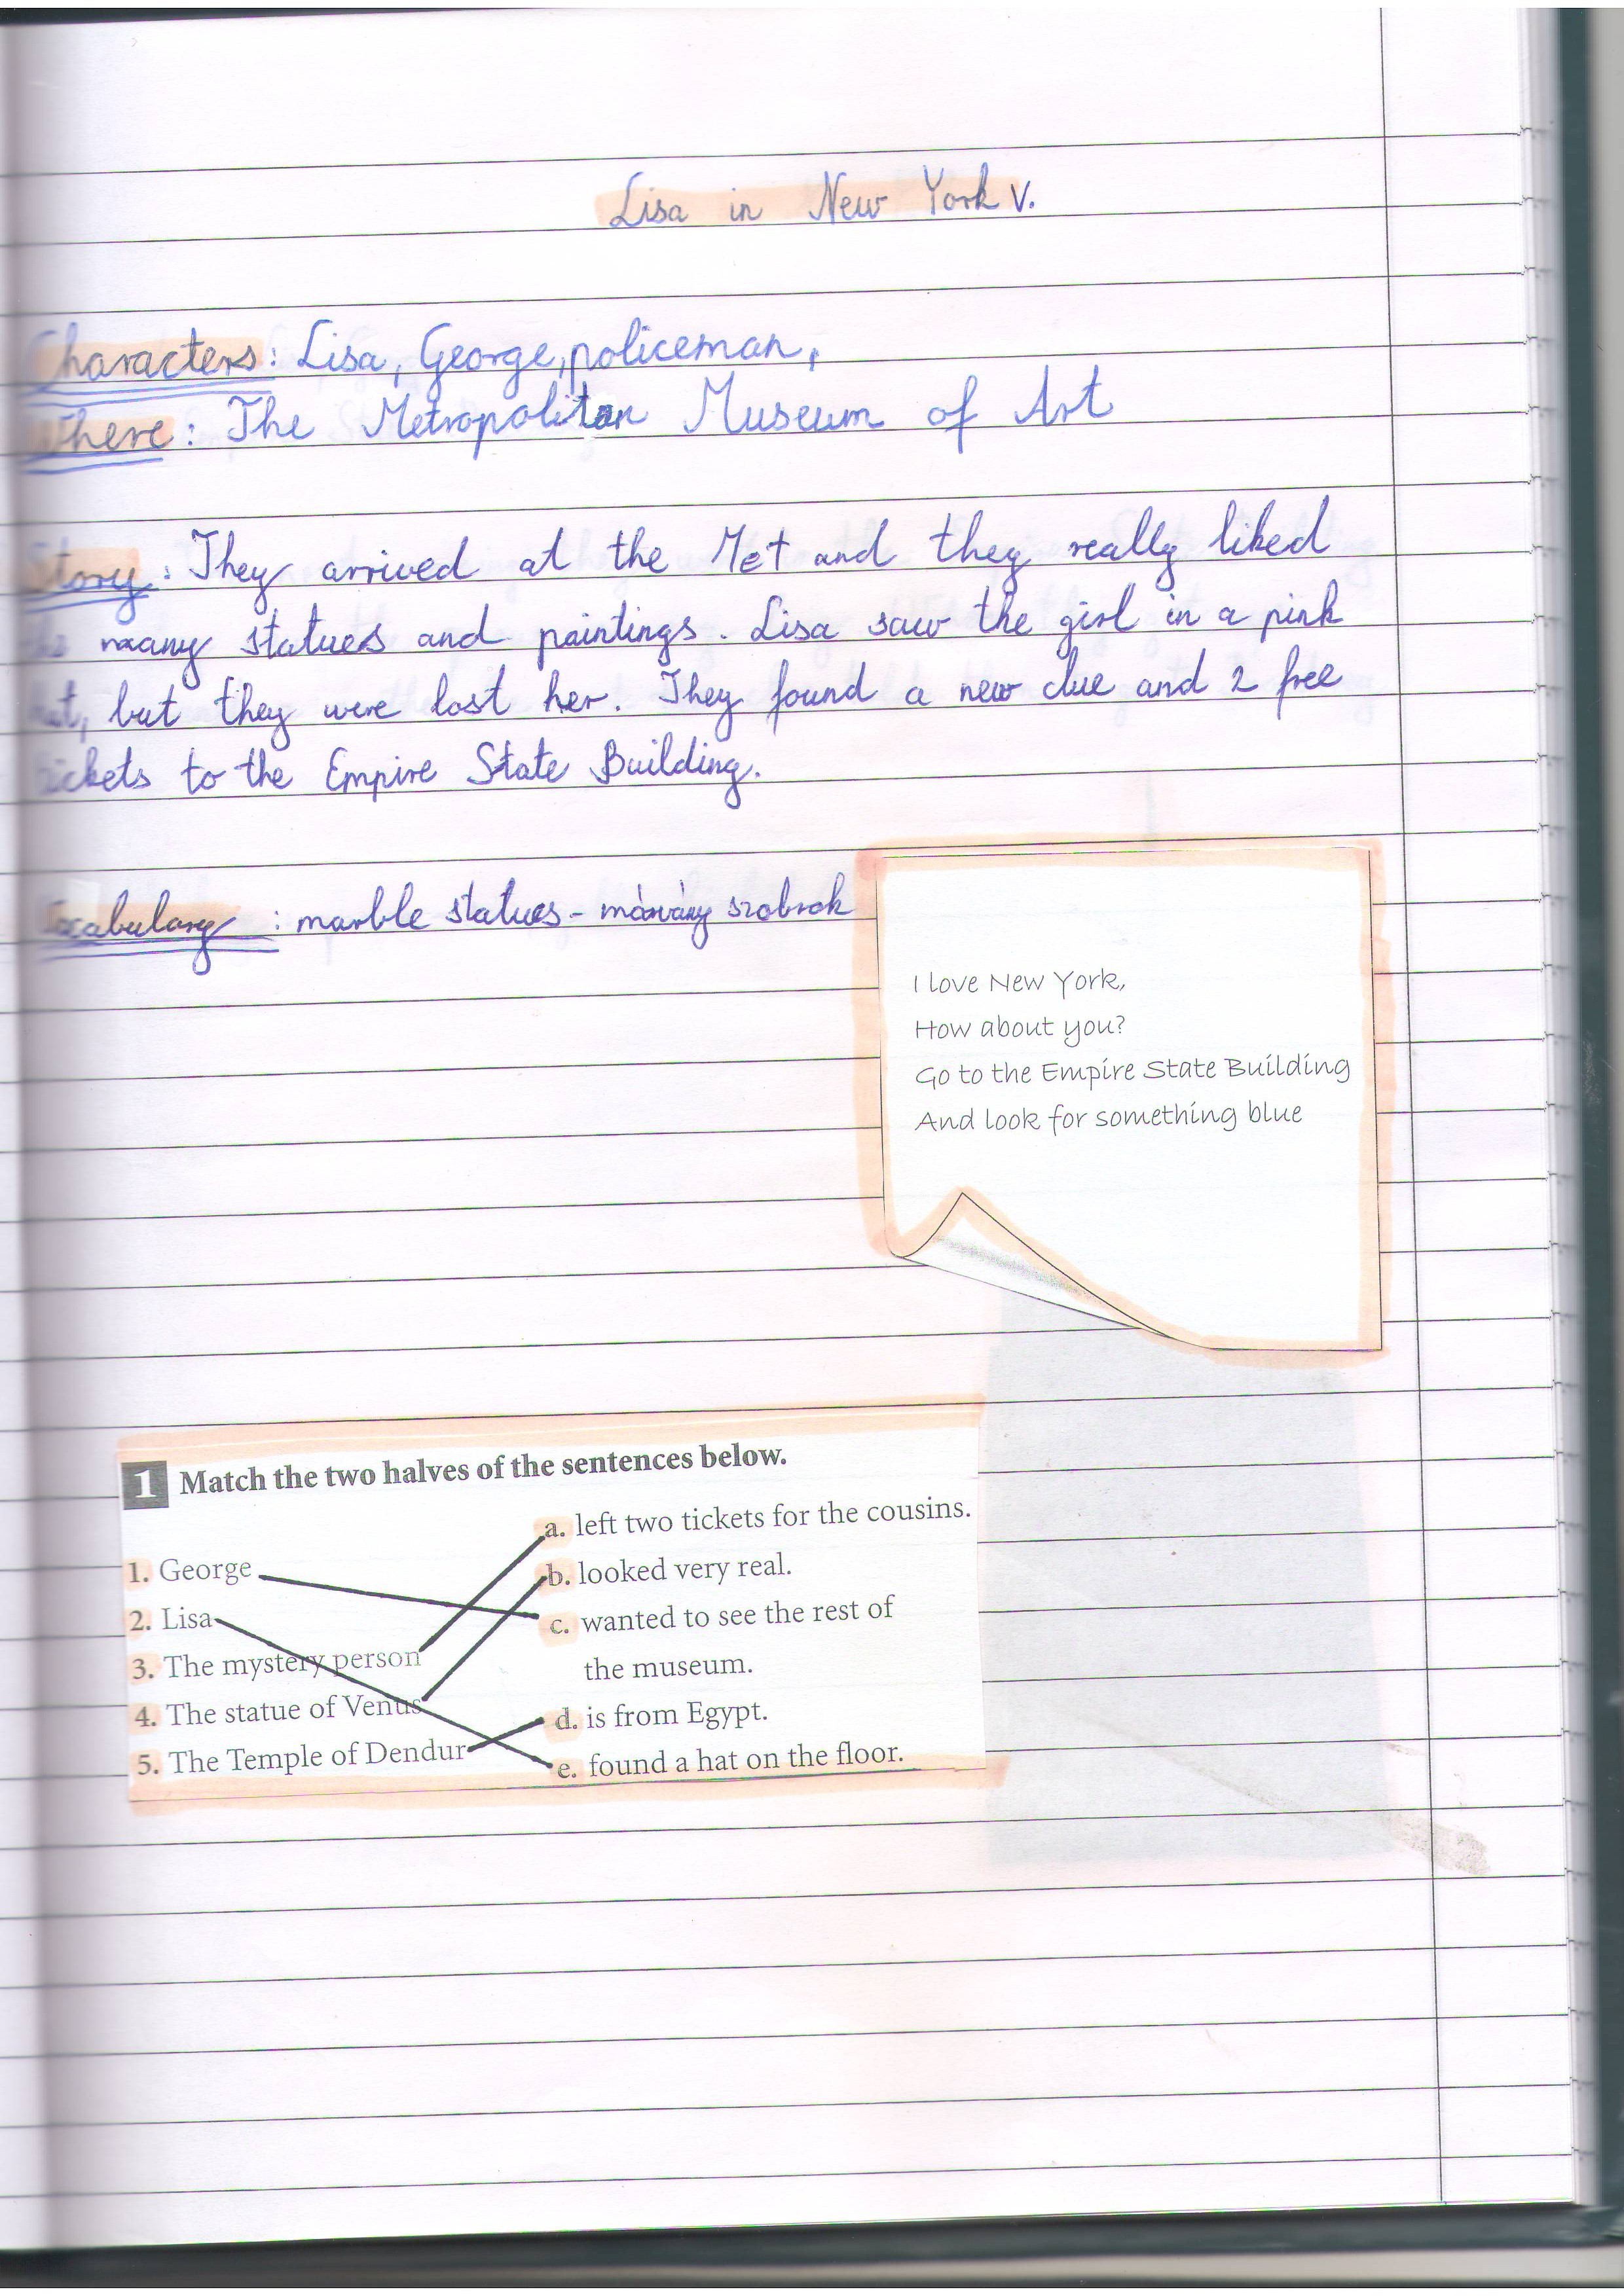 Lisa in New York V.
Characters: Lisa, George, policeman,
Where: The Metropolitan Museum of Art
Story: They arrived at the Met and they really liked
the many statues and paintings. Lisa saw the girl in a pink
hat, but they were lost her. They found a new clue and 2 free
tickets to the Empire State Building.
Vocabulary: marble statues - márvány szobrok
I love New York,
How about you?
Go to the Empire State Building
And look for something blue
1 Match the two halves of the sentences below.
1. George
2. Lisa
3. The mystery person
4. The statue of Venus
5. The Temple of Dendur
a. left two tickets for the cousins.
b. looked very real.
c. wanted to see the rest of
the museum.
d. is from Egypt.
e. found a hat on the floor.